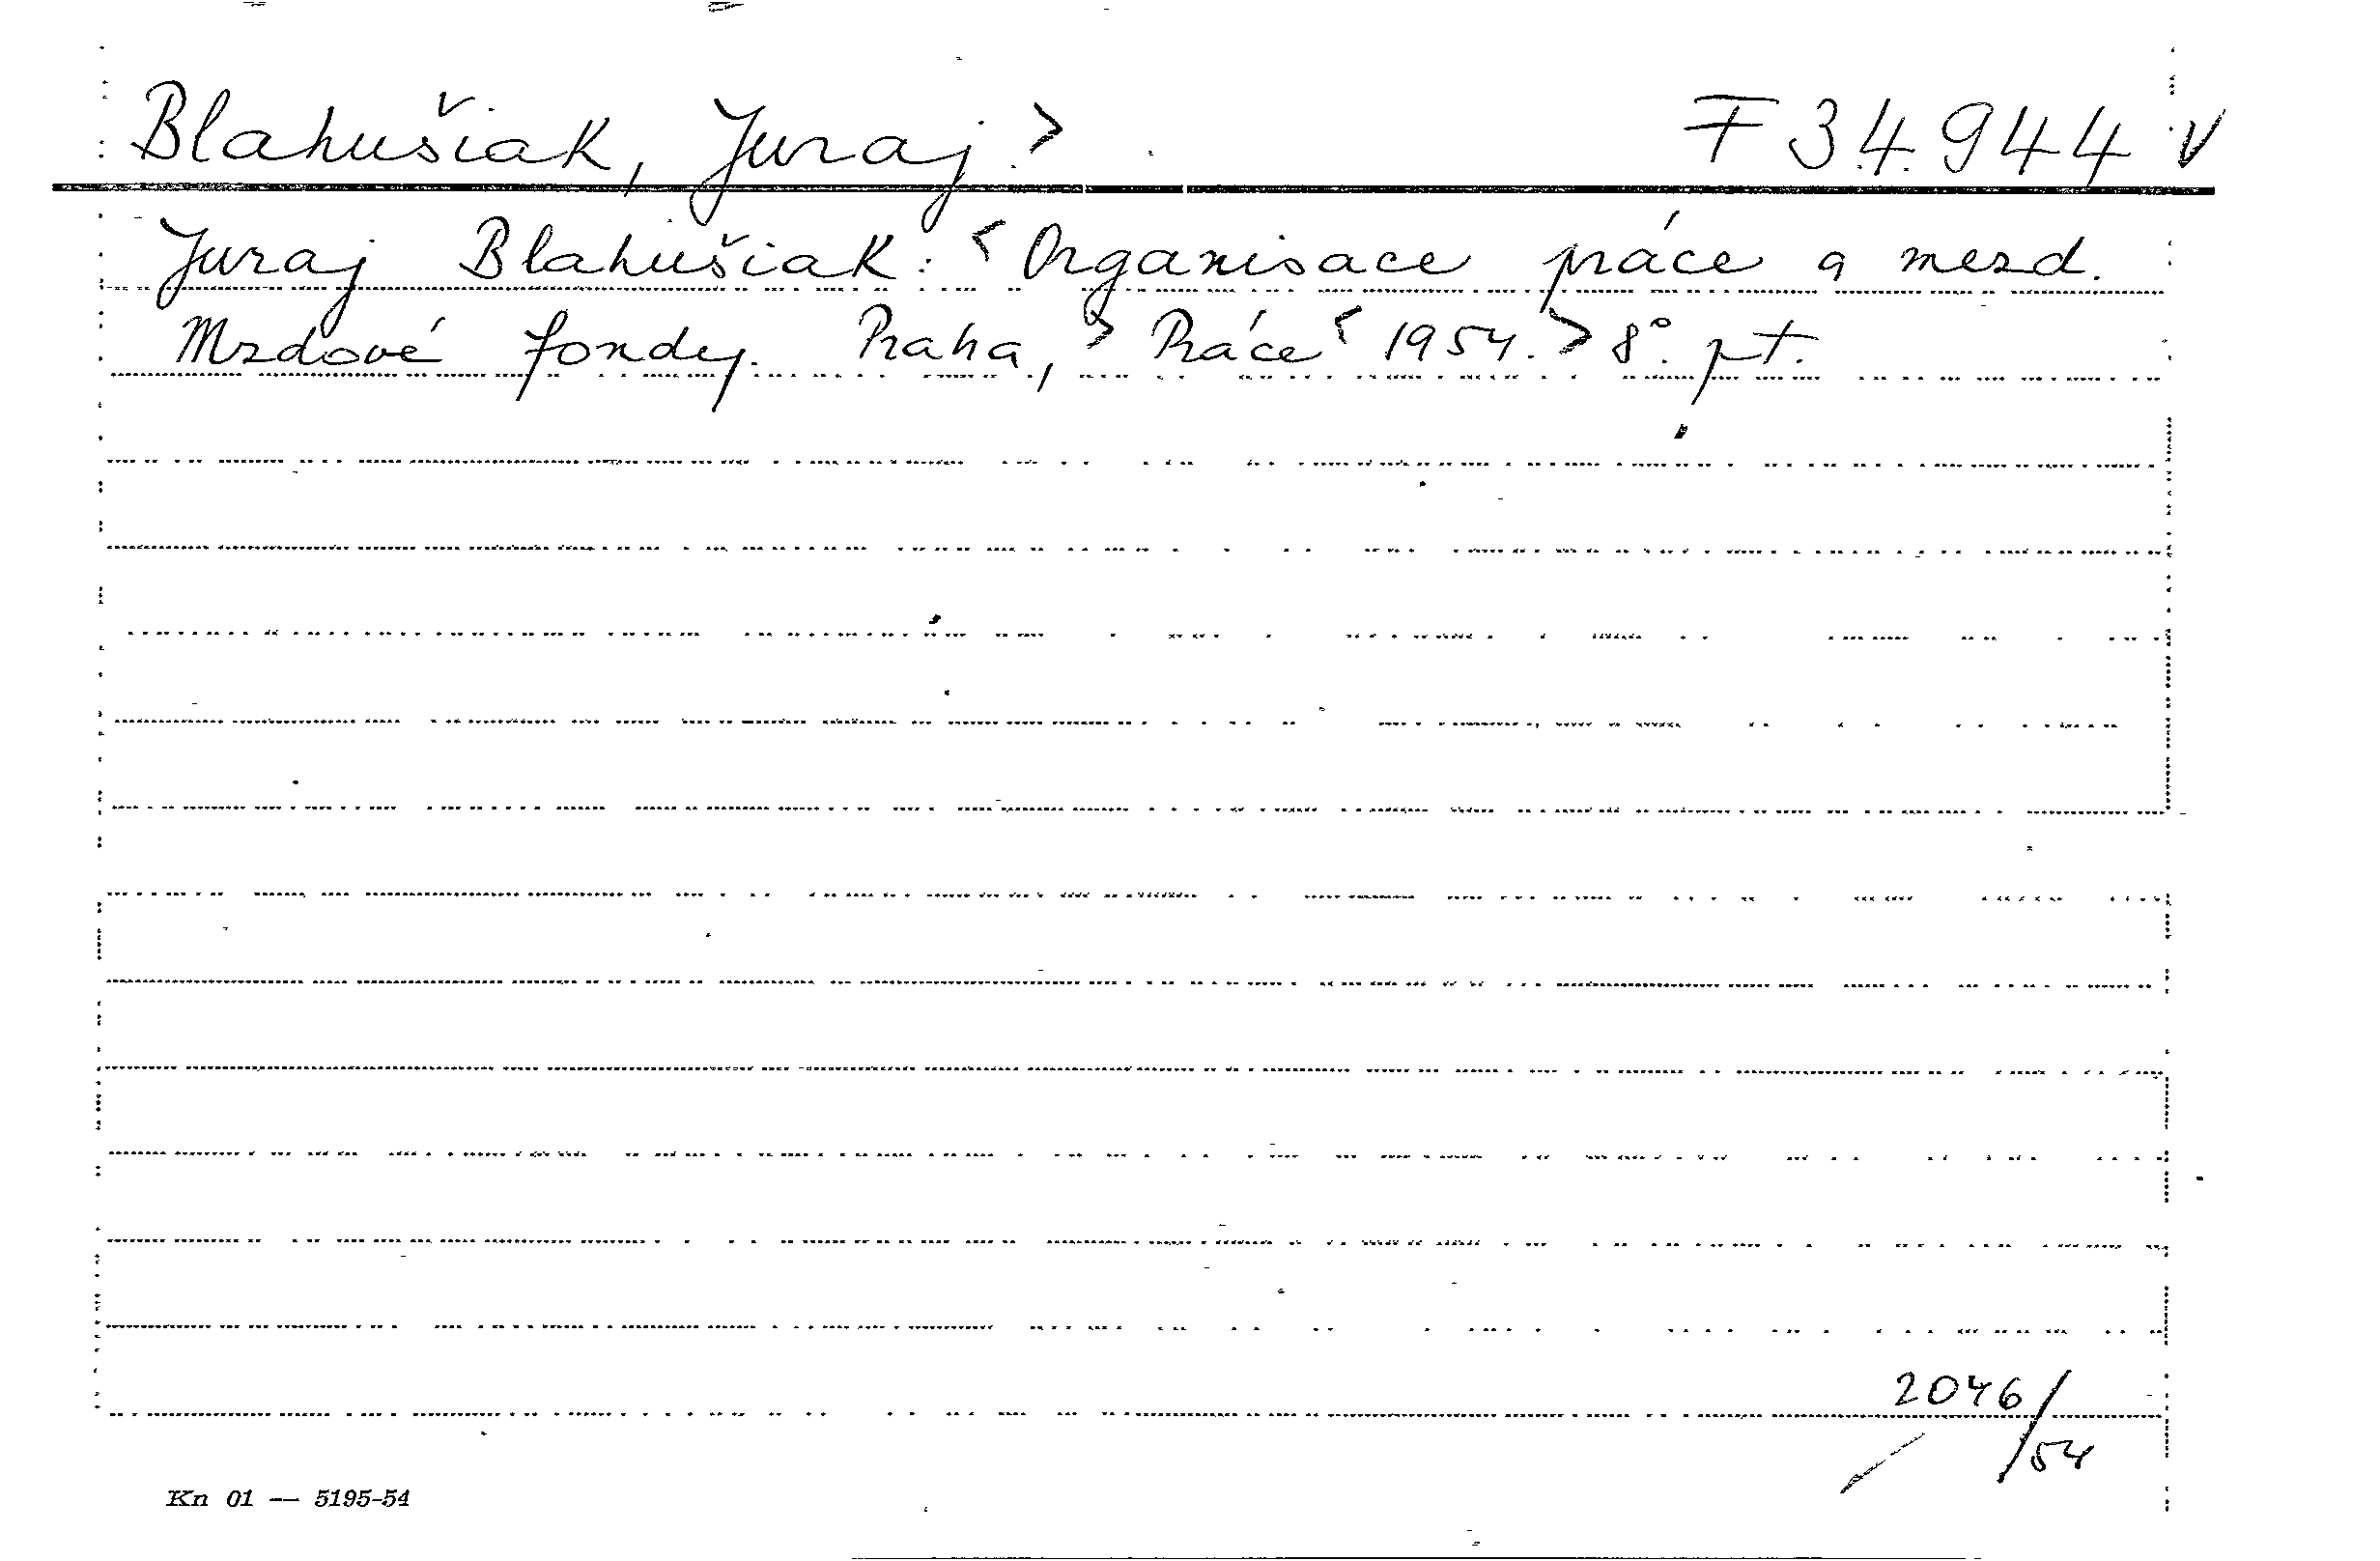 Blahušiak, Juraj > F 34.944 V
Juraj Blahušiak: < Organisace práce a mezd.
Mzdové fondy. Praha, > Práce < 1954. > 8°. pt.
2046/54
Kn 01 — 5195-54